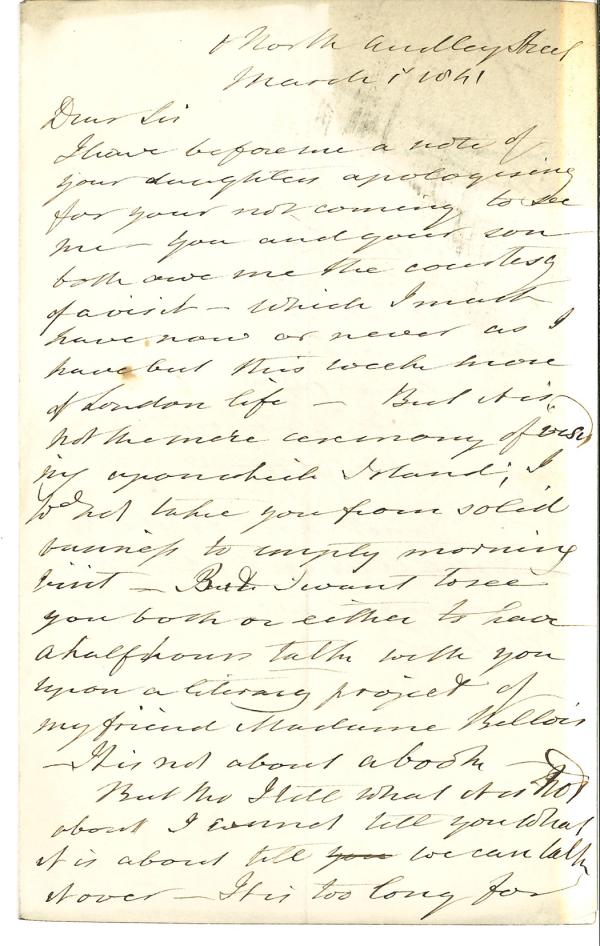 North Audley Street
March 1st 1841
Dear Sir
I have before me a note of
your daughters apologising
for your not coming to see
me – You and your son
both owe me the courtesy
of a visit – which I must
have now or never as I
have but this week more
of London life – But it is
not the mere ceremony of visit
ing upon which I stand; I
wd not take you from solid
business to empty morning
visit – But I want to see
you both or either to have
a half hours talk with you
upon a literary project of
my friend Madame Belloc's
– It is not about a book –
But tho I tell what it is not
about I cannot tell you what
it is about till you we can talk
it over – It is too long for